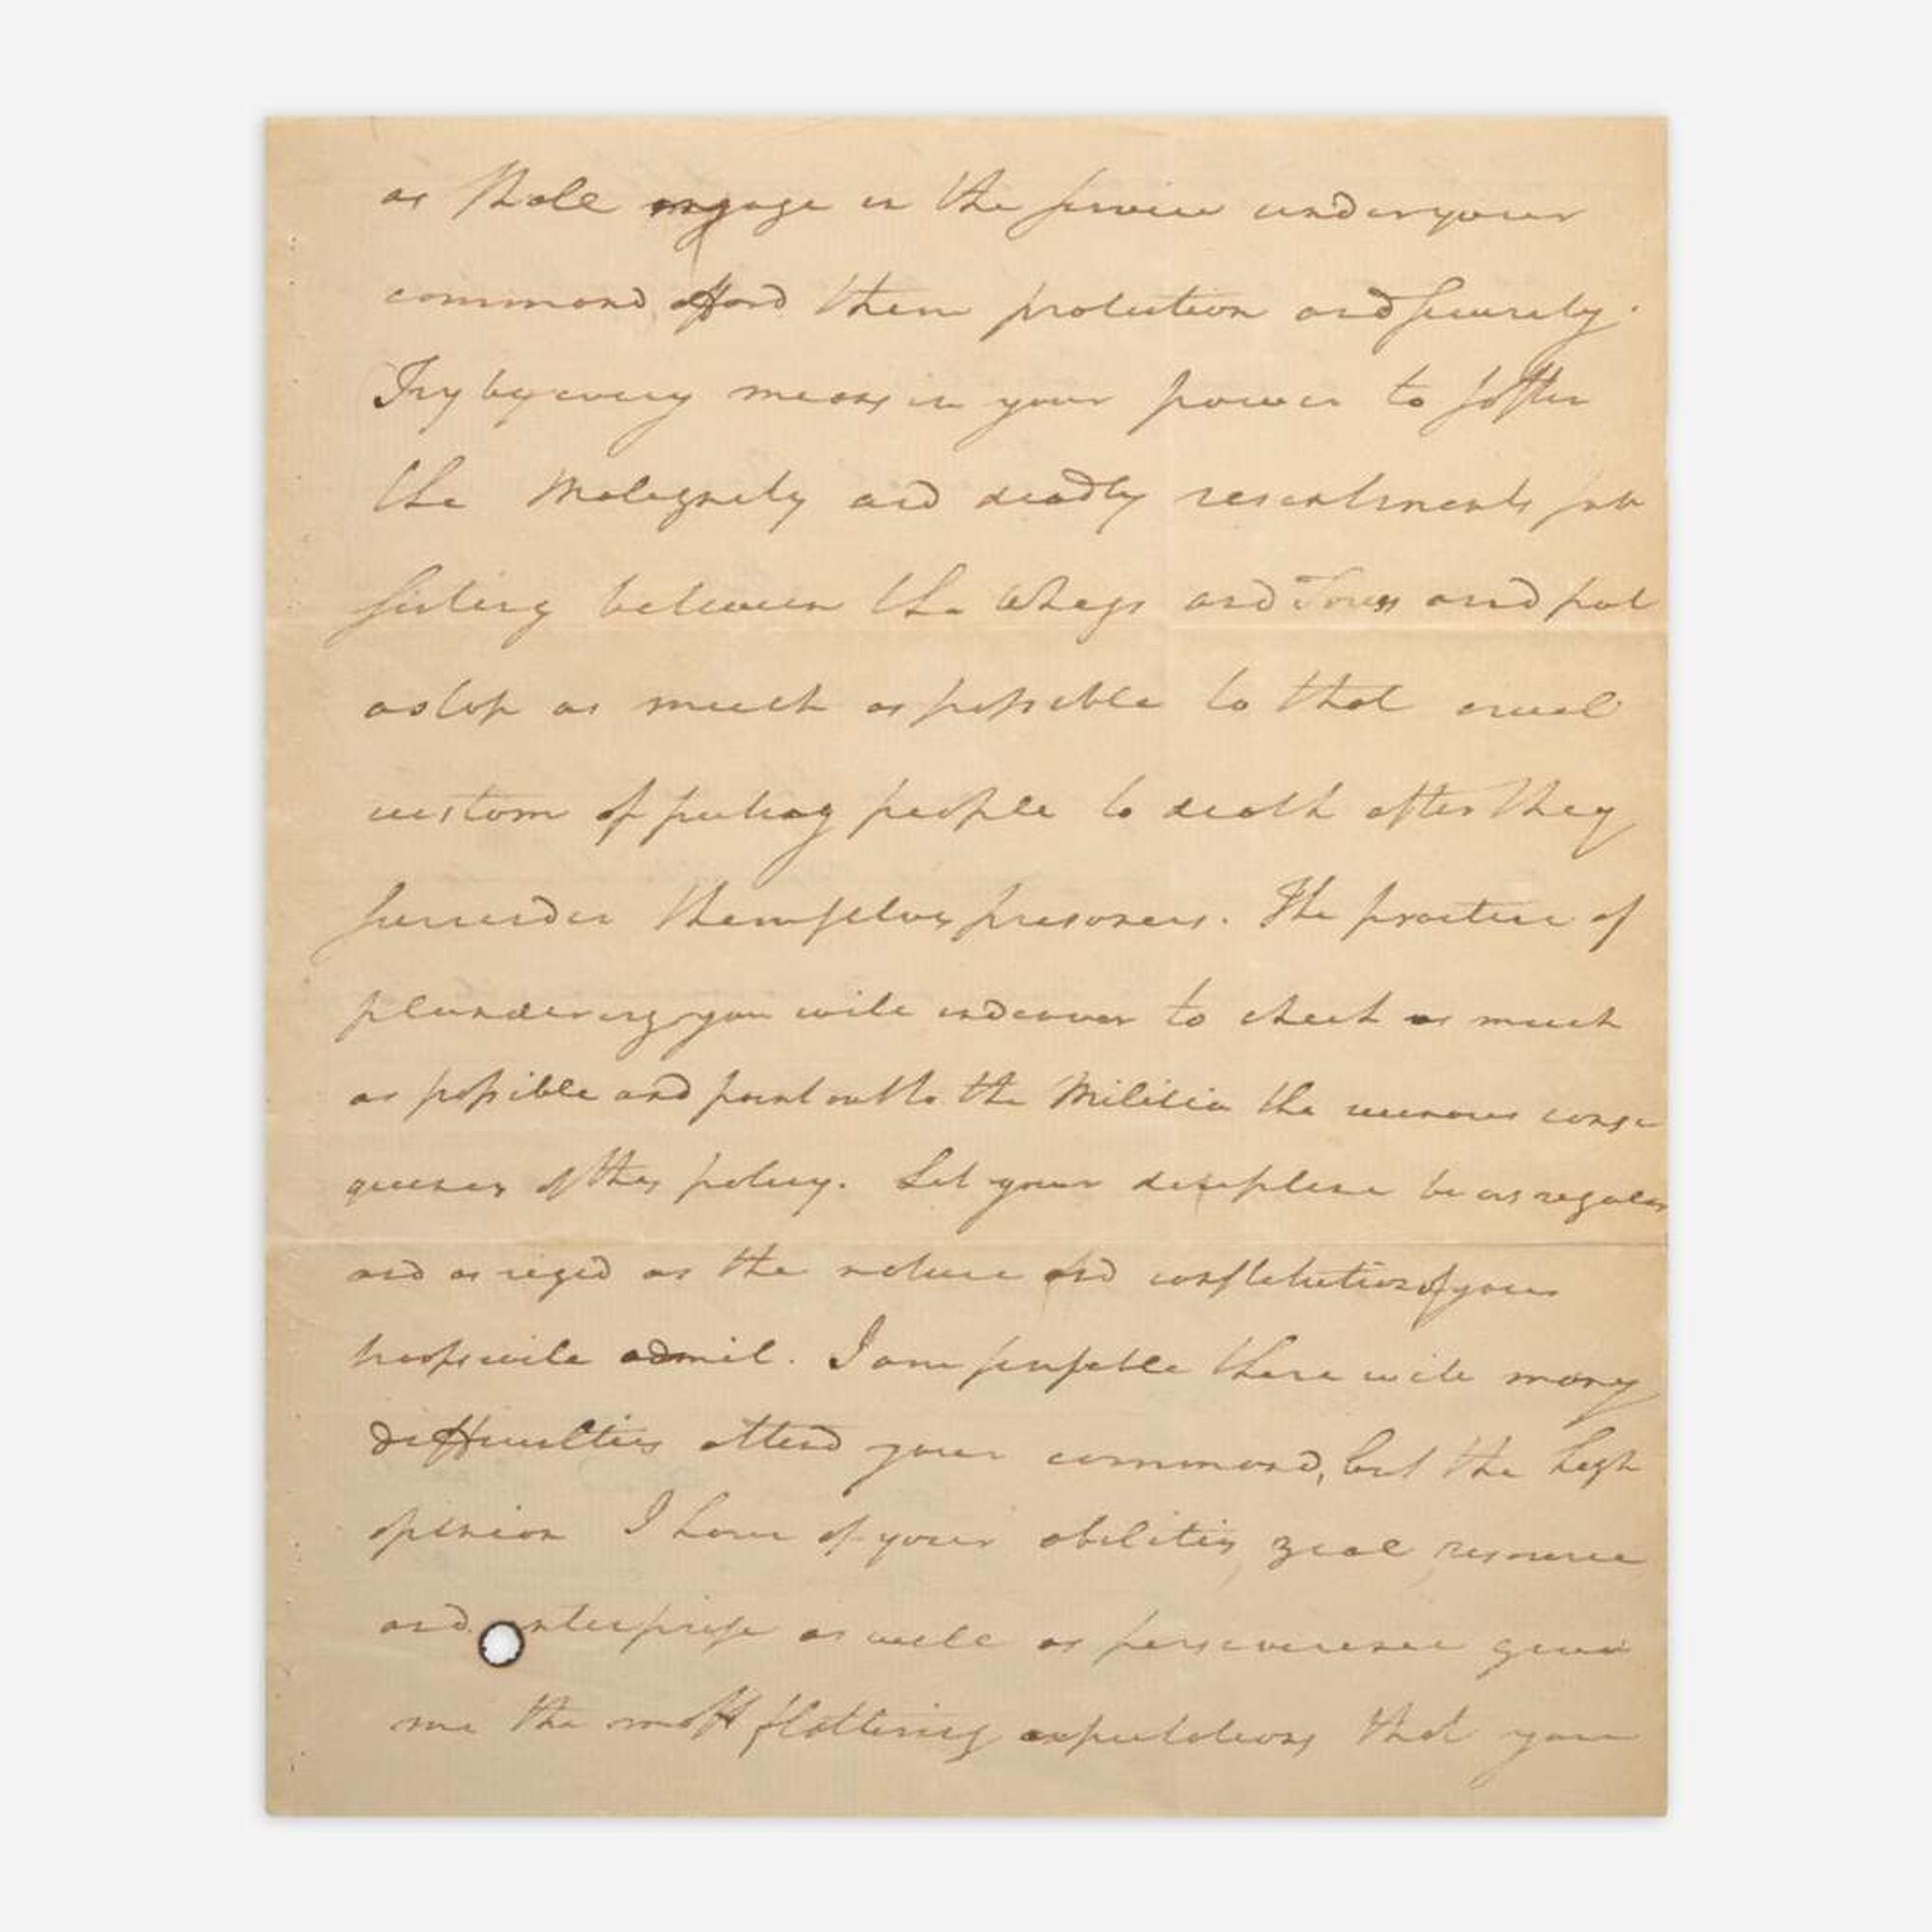 as shall engage in the service under your
command afford them protection and security.
Try by every means in your power to soften
the Malignity and deadly resentments sub
sisting between the Whigs and Tories and put
a stop as much as possible to that cruel
custom of puting people to death after they
surrender themselves prisoners. The practice of
plundering you will endeavor to check as much
as possible and point out to the Militia the ruinous conse
quences of the policy. Let your discipline be as regular
and as rigid as the nature and constitution of your
troops will admit. I am sensible there will many
difficulties attend your command, but the high
opinion I have of your abilities, zeal, resource
and enterprise as well as perseverence gives
me the most flattering expectations that you